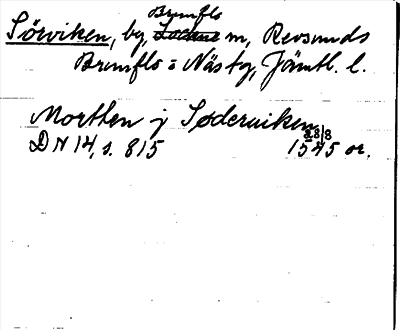 Brunflo
Sörviken, by, m, Revsunds
Brunflo o Näs tg, Jämtl. l.
Morthen j Søderuiken
28/8
DN 14, s. 815 1545 or.